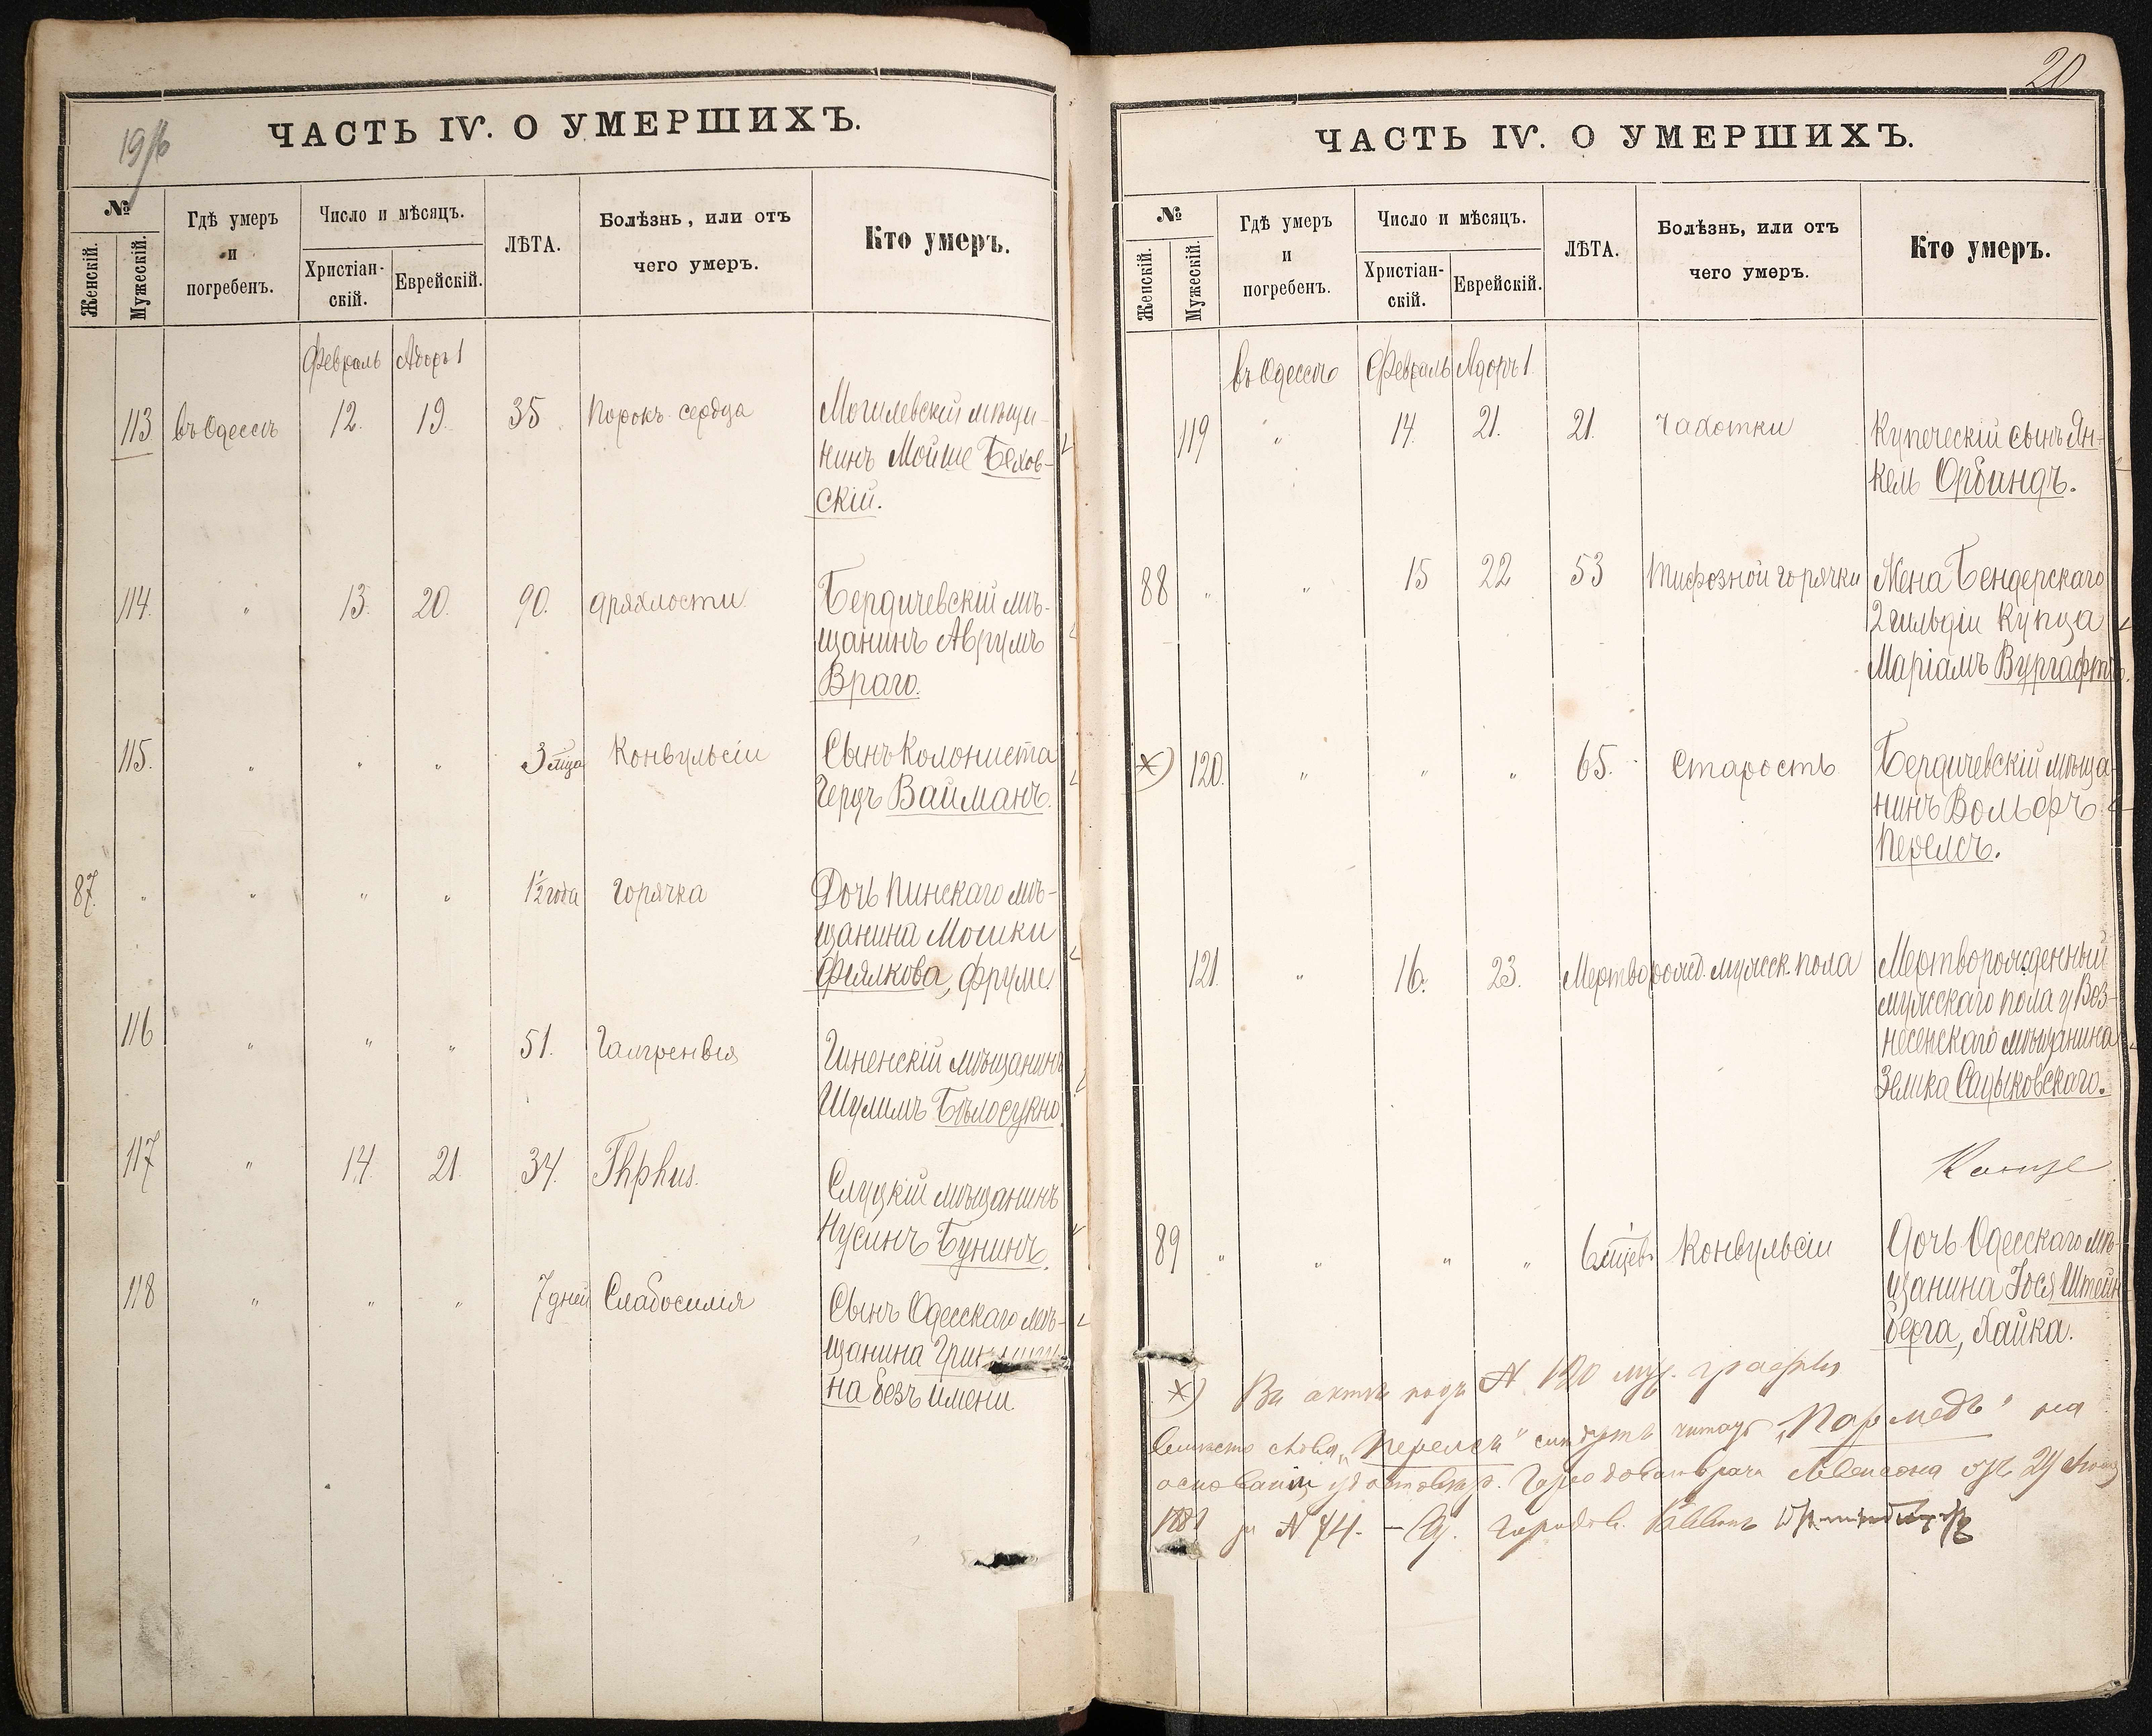 ЧАСТЬ IV. О УМЕРШИХЪ.
№
Женскій.
Мужескій.
Гдѣ умеръ
и
погребенъ.
Число и мѣсяцъ.
Христіан-
скій.
Еврейскій.
ЛѢТА.
Болѣзнь, или отъ
чего умеръ.
Кто умеръ.
Февраль Адоръ 1
113. въ Одессѣ 12. 19. 35. Порокъ сердца Могилевскій мѣща-
нинъ Мойше Бехов-
скій.
114. " 13. 20. 90. дряхлости Бердичевскій мѣ-
щанинъ Аврумъ
Враго.
115. " " " 3 мца Конвульсіи Сынъ Колониста
Герцъ Вайманъ.
87. " " " " 1½ года Горячка Дочь Пинскаго мѣ-
щанина Мошки
Фіялкова, Фруме.
116 " " " 51. Шненскій мѣщанинъ
Шулимъ Бѣлосукно.
117 " 14. 21. 34. Thphus. Слуцкій мѣщанинъ
Нусинъ Бунинъ.
118 " " " 7 дней Слабосилія Сынъ Одесскаго мѣ-
щанина
на безъ имени.
20
ЧАСТЬ IV. О УМЕРШИХЪ.
№
Женскій.
Мужескій.
Гдѣ умеръ
и
погребенъ.
Число и мѣсяцъ.
Христіан-
скій.
Еврейскій.
ЛѢТА.
Болѣзнь, или отъ
чего умеръ.
Кто умеръ.
въ Одессѣ Февраль Адоръ 1
119 " 14. 21. 21. Чахотки Купеческій сынъ Ян-
кель Орбиндъ.
88 " " 15 22 53 тифозной горячки Жена Бендерскаго
2 гильдіи Купца
Маріамъ Вургафтъ.
×) 120. " " " 65. Старость Бердичевскій мѣща-
нинъ Вольфъ
Перелсъ.
121. " 16. 23. Мертворожд. мужеск. пола Мертворожденный
мужскаго пола у Воз-
несенскаго мѣщанина
Зелика Садыковскаго.
89 " " " " 6 мцевъ Конвульсіи Дочь Одесскаго мѣ-
щанина Іося Штейн-
берга, Хайка.
×) Въ актѣ подъ № 120 муж. графы
вмѣсто слова „Перелсъ" слѣдуетъ читать „Пармедъ" на
основаніи удостовѣр. Городоваго врача от 29
1881 за № 74. — И. Городов. Раввинъ